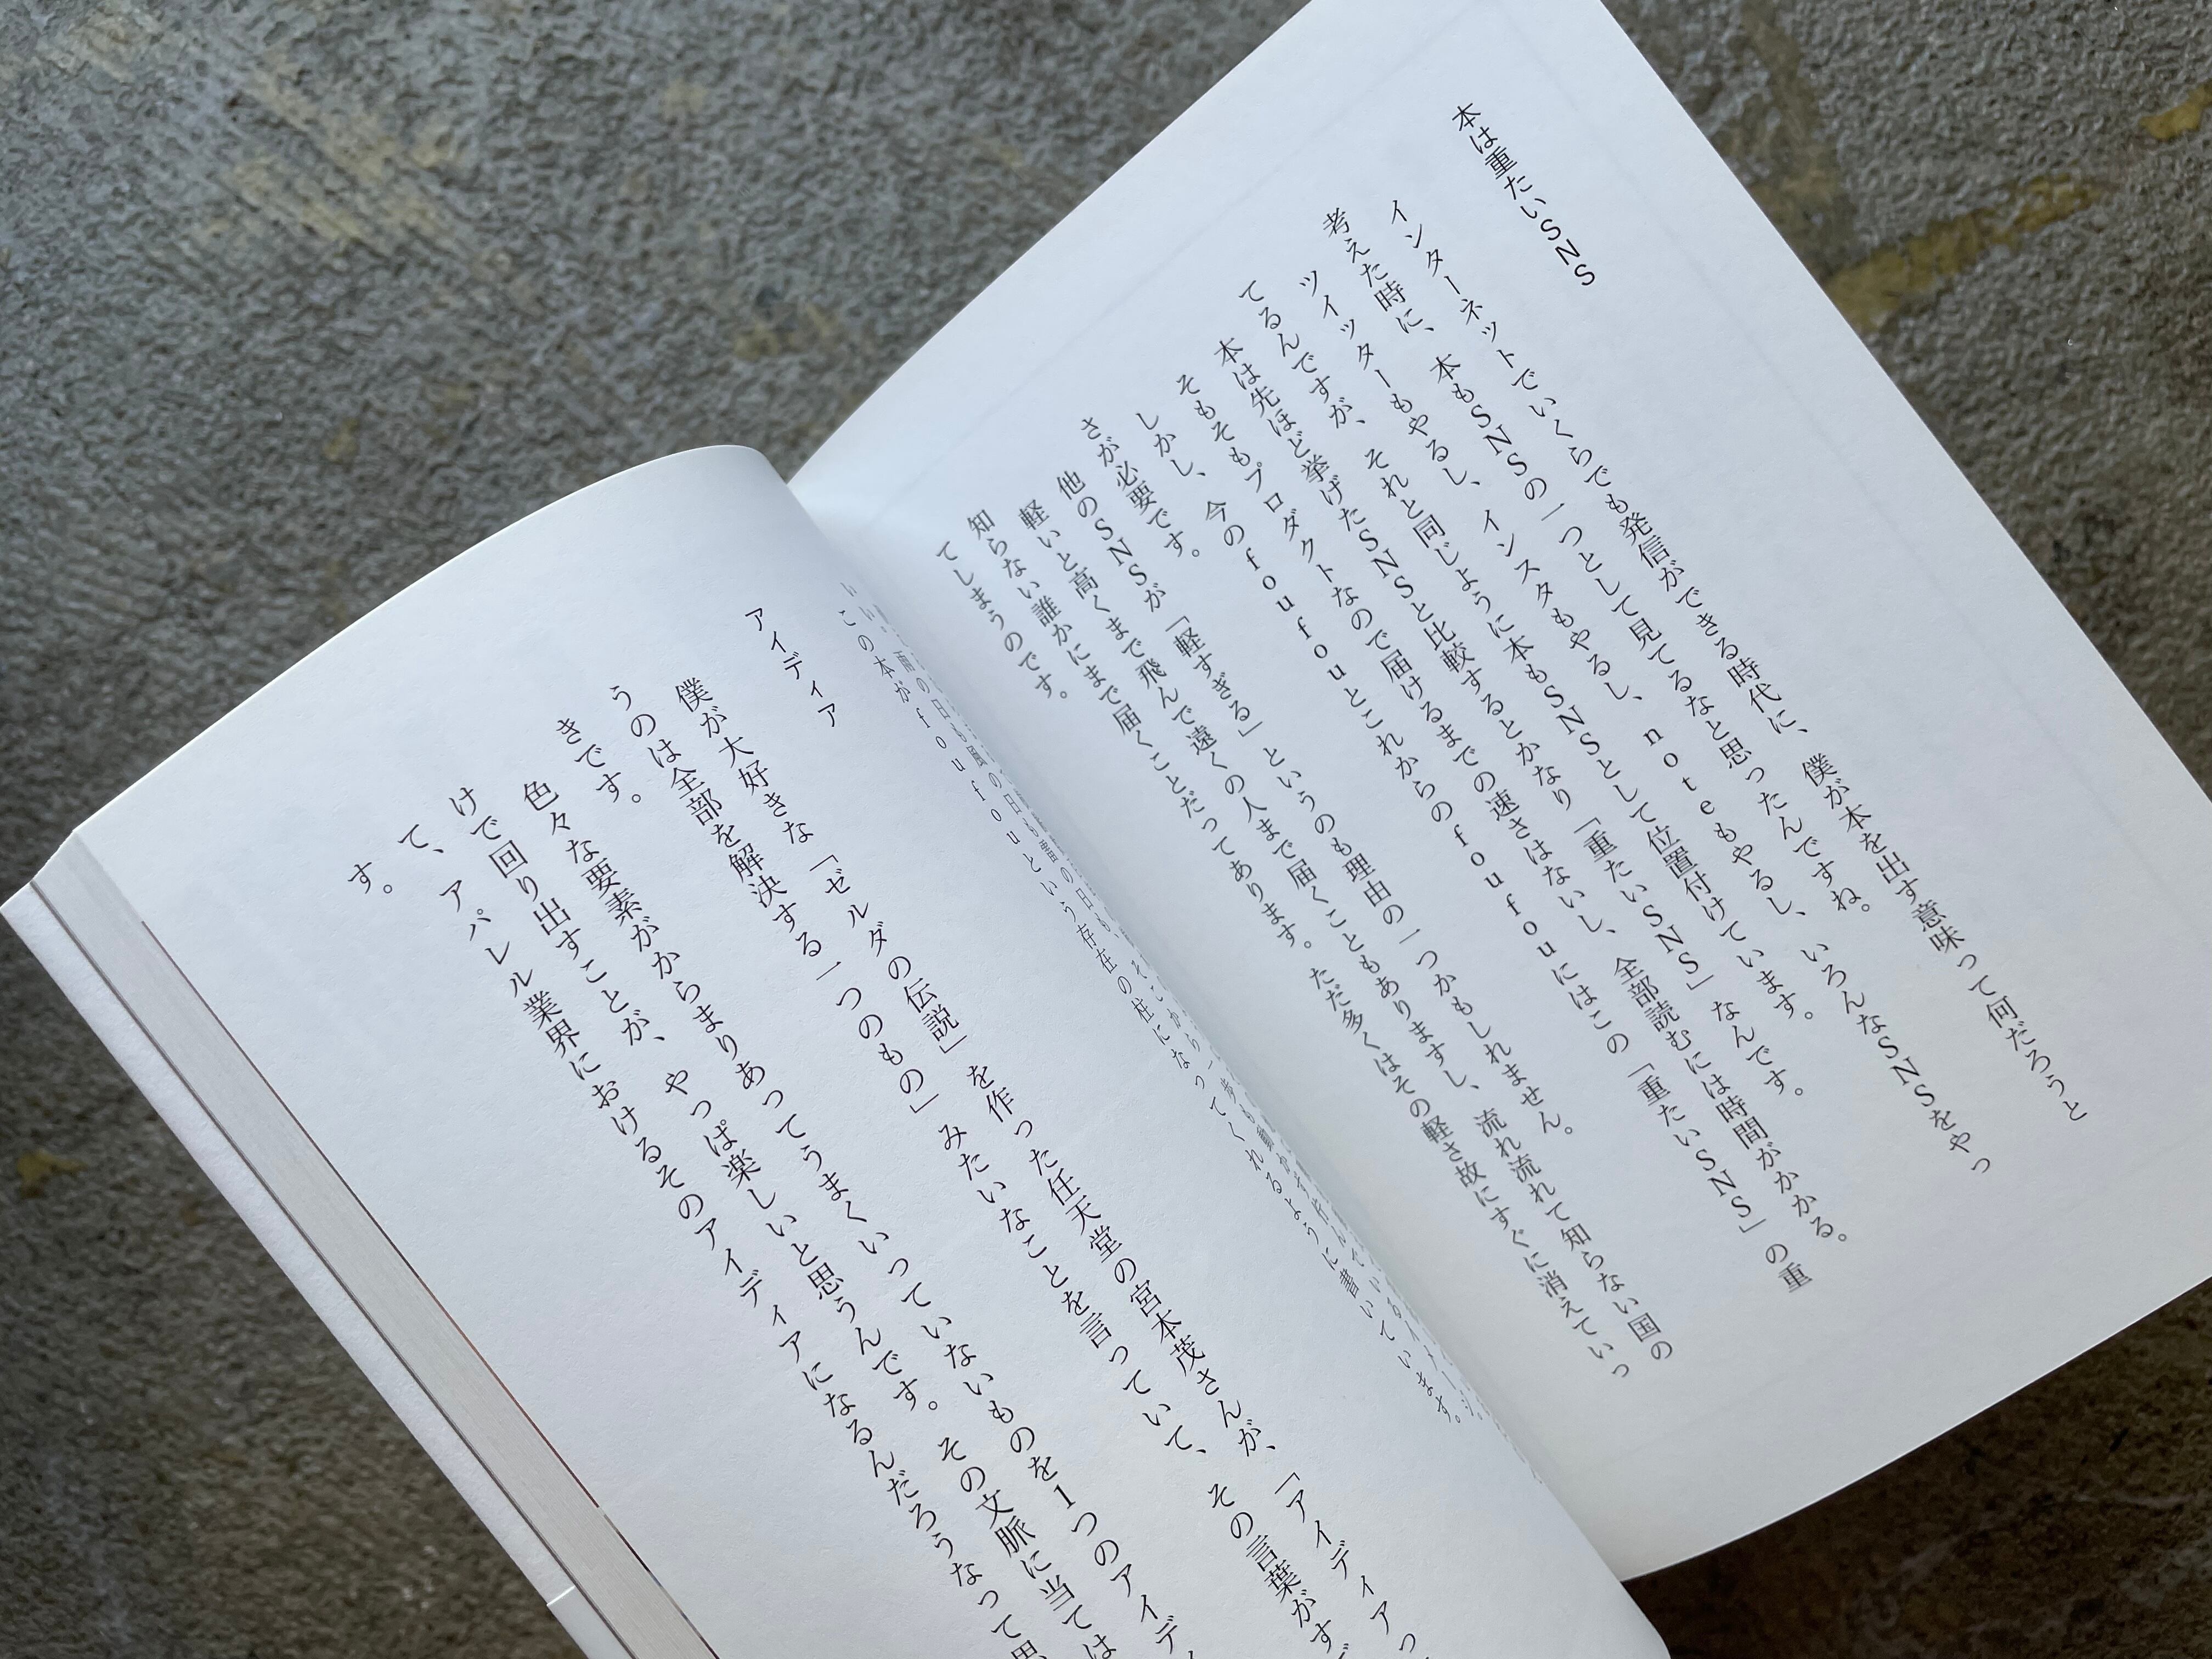 本は重たいSNS
インターネットでいくらでも発信ができる時代に、僕が本を出す意味って何だろうと
考えた時に、本もSNSの一つとして見てるなと思ったんですね。
ツイッターもやるし、インスタもやるし、noteもやるし、いろんなSNSをやっ
てるんですが、それと同じように本もSNSとして位置付けています。
本は先ほど挙げたSNSと比較するとかなり「重たいSNS」なんです。
そもそもプロダクトなので届けるまでの速さはないし、全部読むには時間がかかる。
しかし、今のfoufouとこれからのfoufouにはこの「重たいSNS」の重
さが必要です。
他のSNSが「軽すぎる」というのも理由の一つかもしれません。
軽いと高くまで飛んで遠くの人まで届くこともありますし、流れ流れて知らない国の
知らない誰かにまで届くことだってあります。ただ多くはその軽さ故にすぐに消えていっ
てしまうのです。
雨の日も風の日も雪の日も、そこから一歩も動かず佇んでいるイメージ。
この本がfoufouという存在の柱になってくれるように書いています。
アイディア
僕が大好きな「ゼルダの伝説」を作った任天堂の宮本茂さんが、「アイディアっ
うのは全部を解決する一つのもの」みたいなことを言っていて、その言葉がす
きです。
色々な要素がからまりあってうまくいっていないものを1つのアイデ
けで回り出すことが、やっぱ楽しいと思うんです。その文脈に当ては
て、アパレル業界におけるそのアイディアになるんだろうなって思
す。